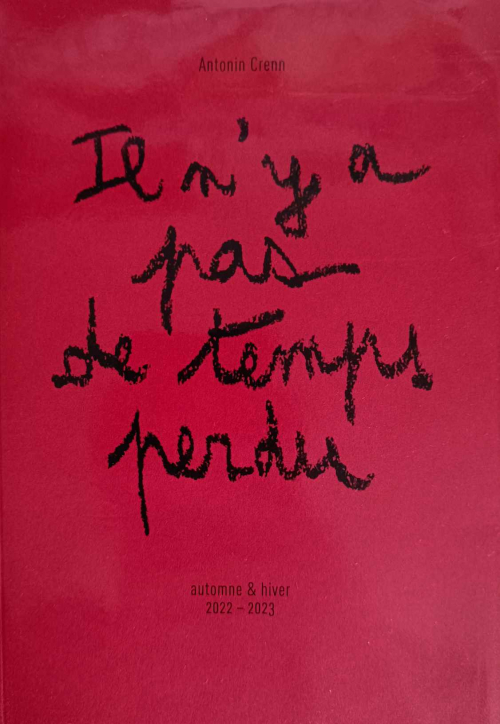 Antonin Crenn
Il n'y a
pas
de temps
perdu
automne & hiver
2022 – 2023